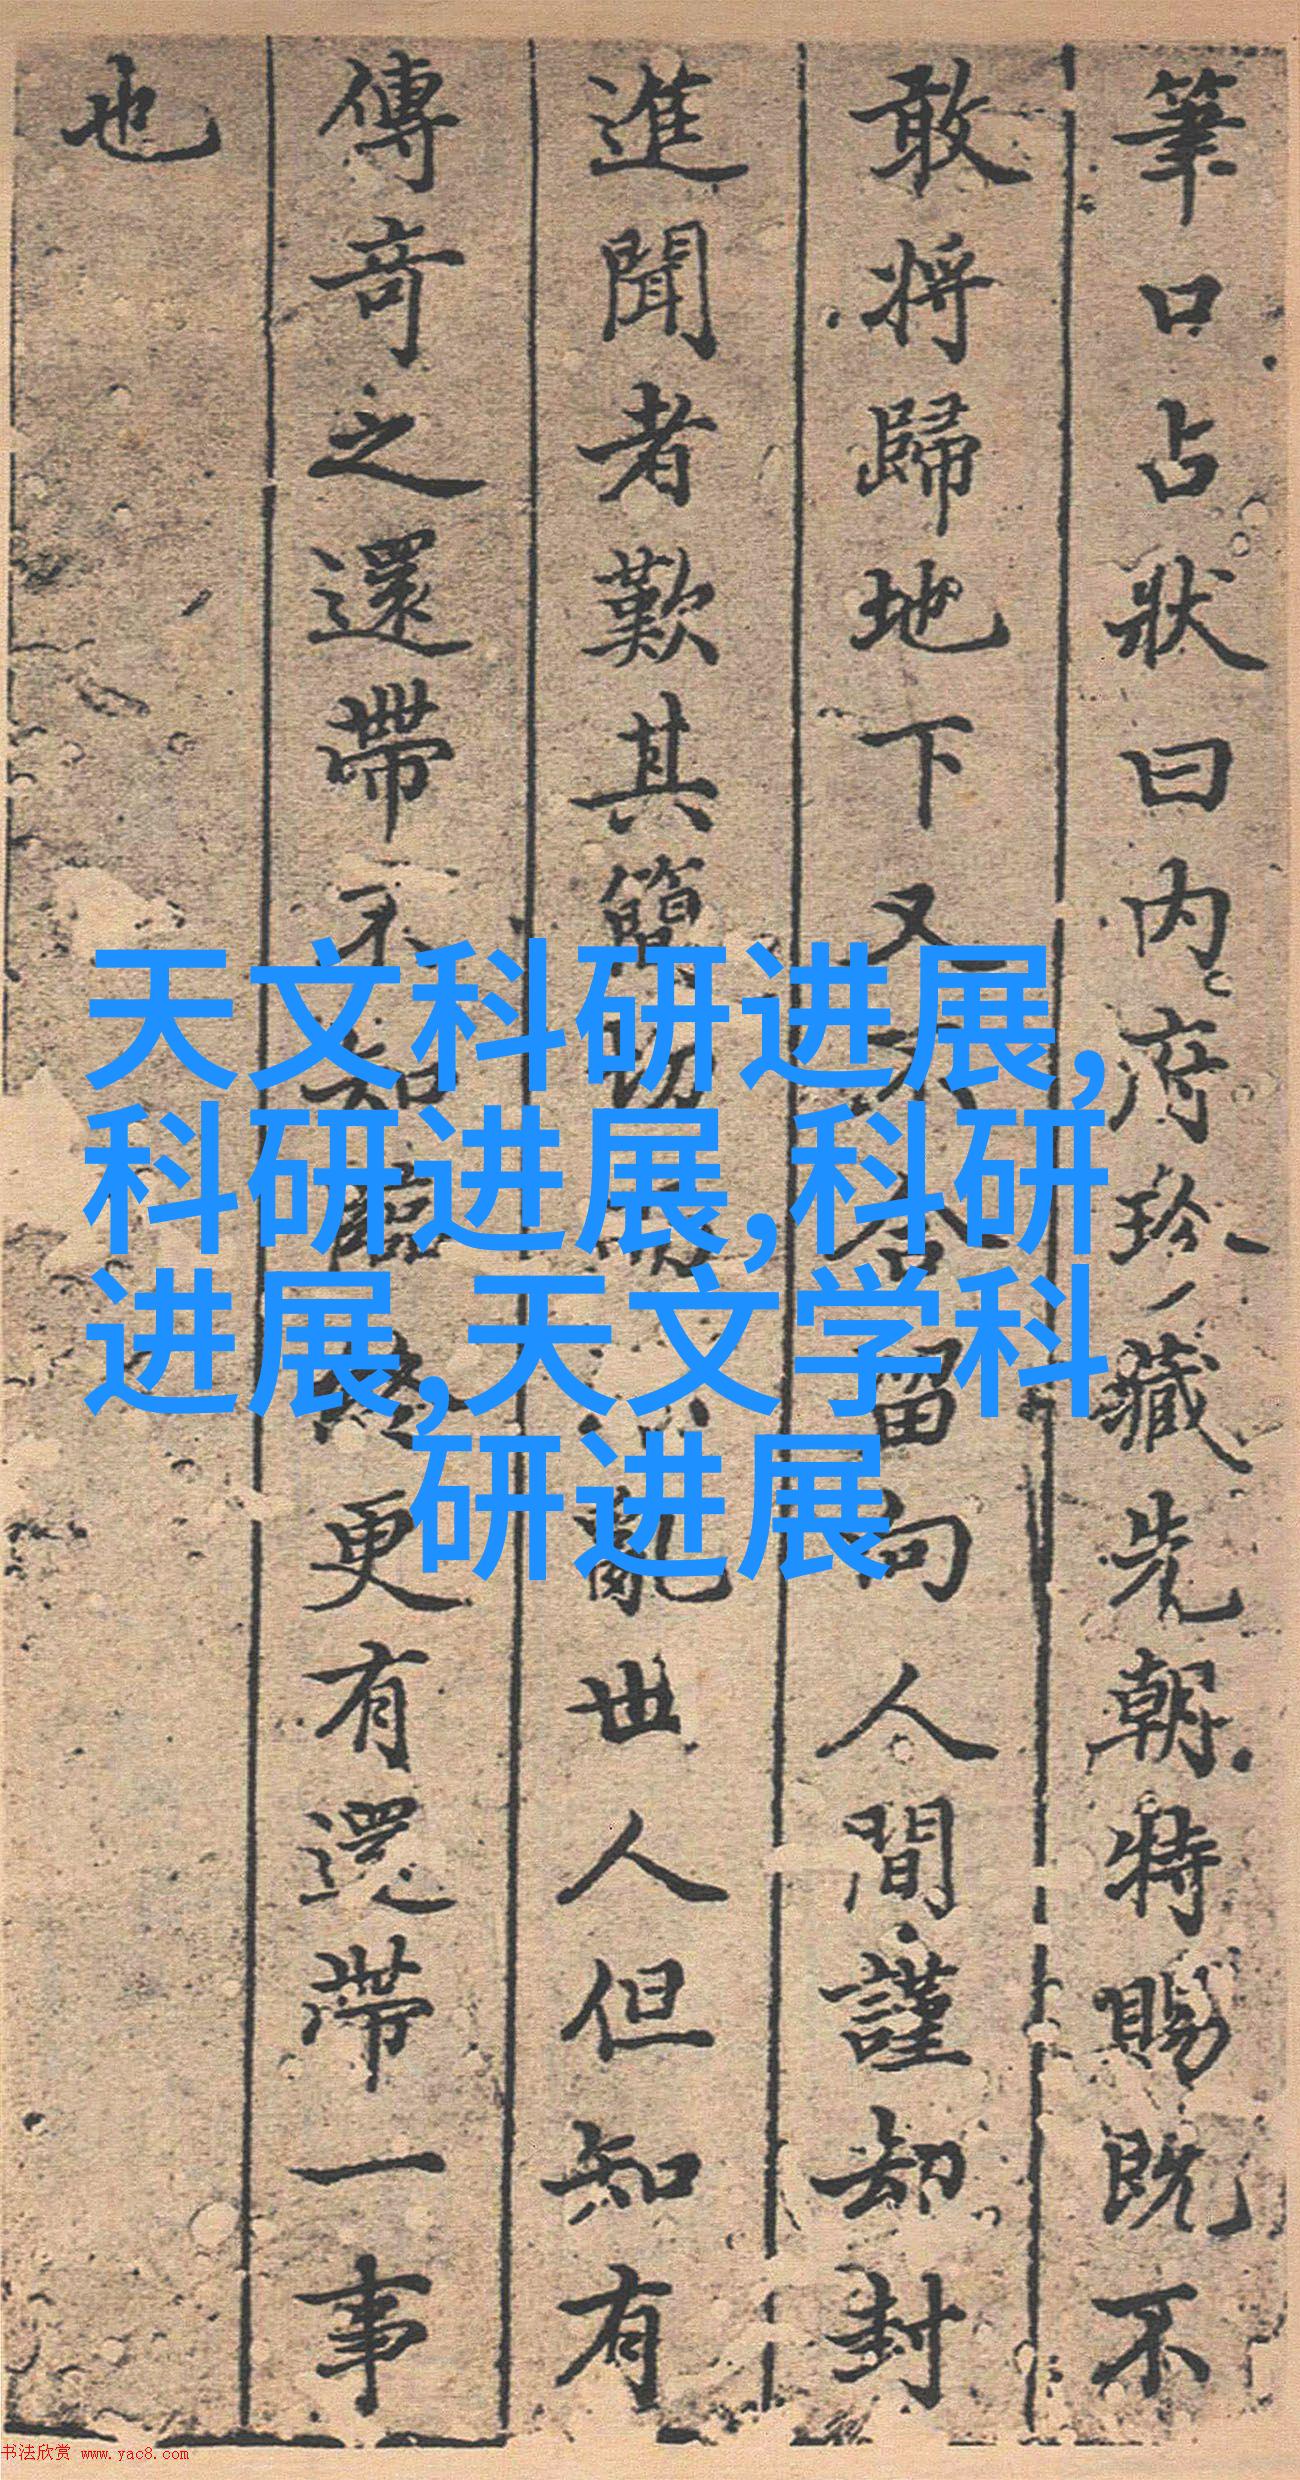 筆口占狀曰内府珍藏先朝特賜既不
敢將歸地下又不合留向人間謹却封
進聞者歎其簡切亂世人但知有
傳奇之還帶不知更有還帶一事
也
天文科研进展,
科研进展,科研
进展,天文学科
研进展
书法欣赏 www.yac8.com